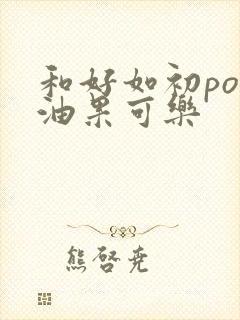 和好如初po
油果可樂
熊啓堯